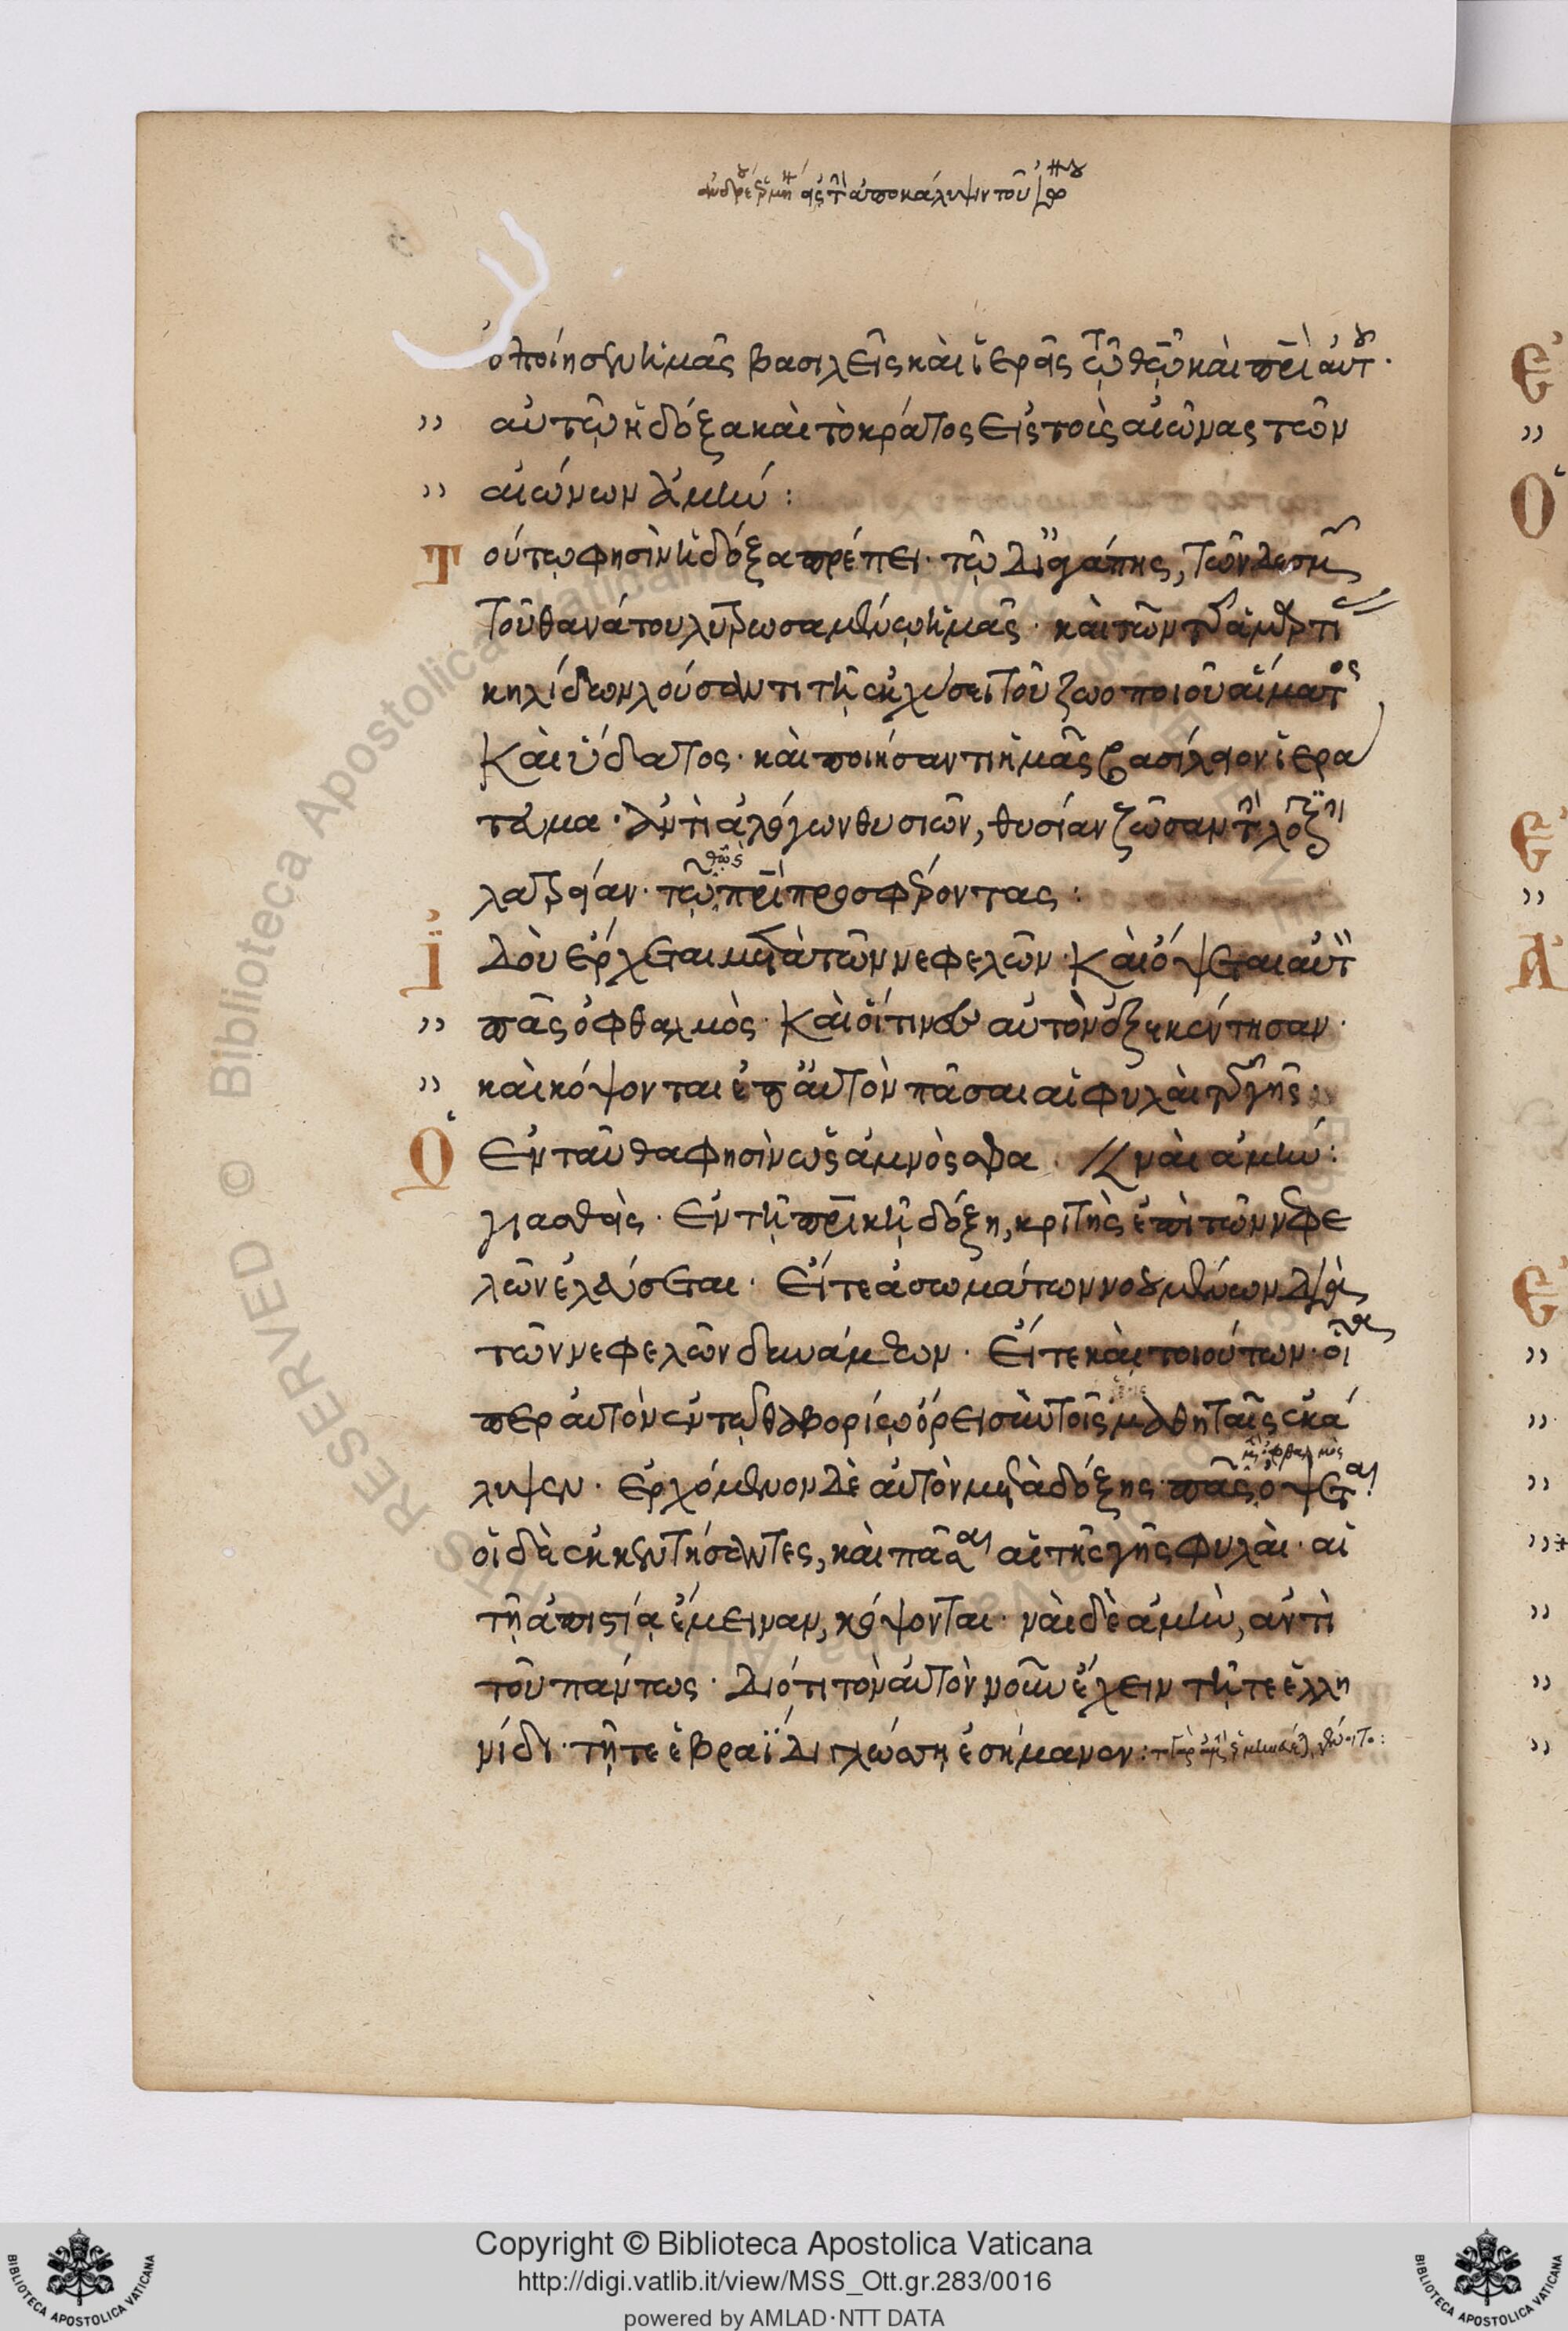 ἐποίησεν ἡμᾶς βασιλεῖς καὶ ἱερεῖς τῷ θῶ καὶ πρὶ αὐτοῦ·
αὐτῷ ἡ δόξα καὶ τὸ κράτος εἰς τοὺς αἰῶνας τῶν
αἰώνων ἀμήν:
Τούτῳ φησὶν ἡ δόξα πρέπει· τῷ δι ἀγάπης, τῶν δεσμῶν
τοῦ θανάτου λυτρωσαμένῳ ἡμᾶς· καὶ τῶν τῆς ἁμαρτίας
κηλίδων λούσαντι τῇ ἐκχύσει τοῦ ζωοποιοῦ αἵματος
καὶ ὕδατος· καὶ ποιήσαντι ἡμᾶς βασίλειον ἱερά
τευμα· ἀντὶ ἀλόγων θυσιῶν, θυσίαν ζῶσαν τὴν λογικὴν
λατρείαν· τῷ πρὶ προσφέροντας:
Ἰδοὺ ἔρχεται μετὰ τῶν νεφελῶν· καὶ ὄψεται αὐτὸν
πᾶς ὀφθαλμὸς· καὶ οἵτινες αὐτὸν ἐξεκέντησαν·
καὶ κόψονται ἐπ αὐτὸν πᾶσαι αἱ φυλαὶ τῆς γῆς:
Ὁ ἐνταῦθα φησὶν ὡς ἀμνὸς σφα // ναὶ ἀμήν:
γιασθεὶς· ἐν τῇ πρικῇ δόξῃ, κριτὴς ἐπὶ τῶν νεφε
λῶν ἐλεύσεται· εἴτε ἀσωμάτων νοουμένων διὰ
τῶν νεφελῶν δυνάμεων· εἴτε καὶ τοιούτων· οἵαι
περ αὐτὸν ἐν τῷ θαβορίῳ ὄρει σὺν τοῖς μαθηταῖς ἐκά
λυψεν· ἐρχόμενον δὲ αὐτὸν μετὰ δόξης πᾶς ὀφθαλμὸς ὄψεται·
οἱ δὲ ἐκκεντήσαντες, καὶ πᾶσαι αἱ τῆς γῆς φυλαὶ· αἳ
τῇ ἀπιστίᾳ ἔμειναν, κόψονται· ναὶ δὲ ἀμὴν, ἀντὶ
τοῦ πάντως· διότι τὸν αὐτὸν νοῦν ἔχειν τῇ τε ἑλλη
νίδι· τῇ τε ἑβραΐδι γλώσσῃ ἐσήμανεν:
Copyright © Biblioteca Apostolica Vaticana
http://digi.vatlib.it/view/MSS_Ott.gr.283/0016
powered by AMLAD·NTT DATA